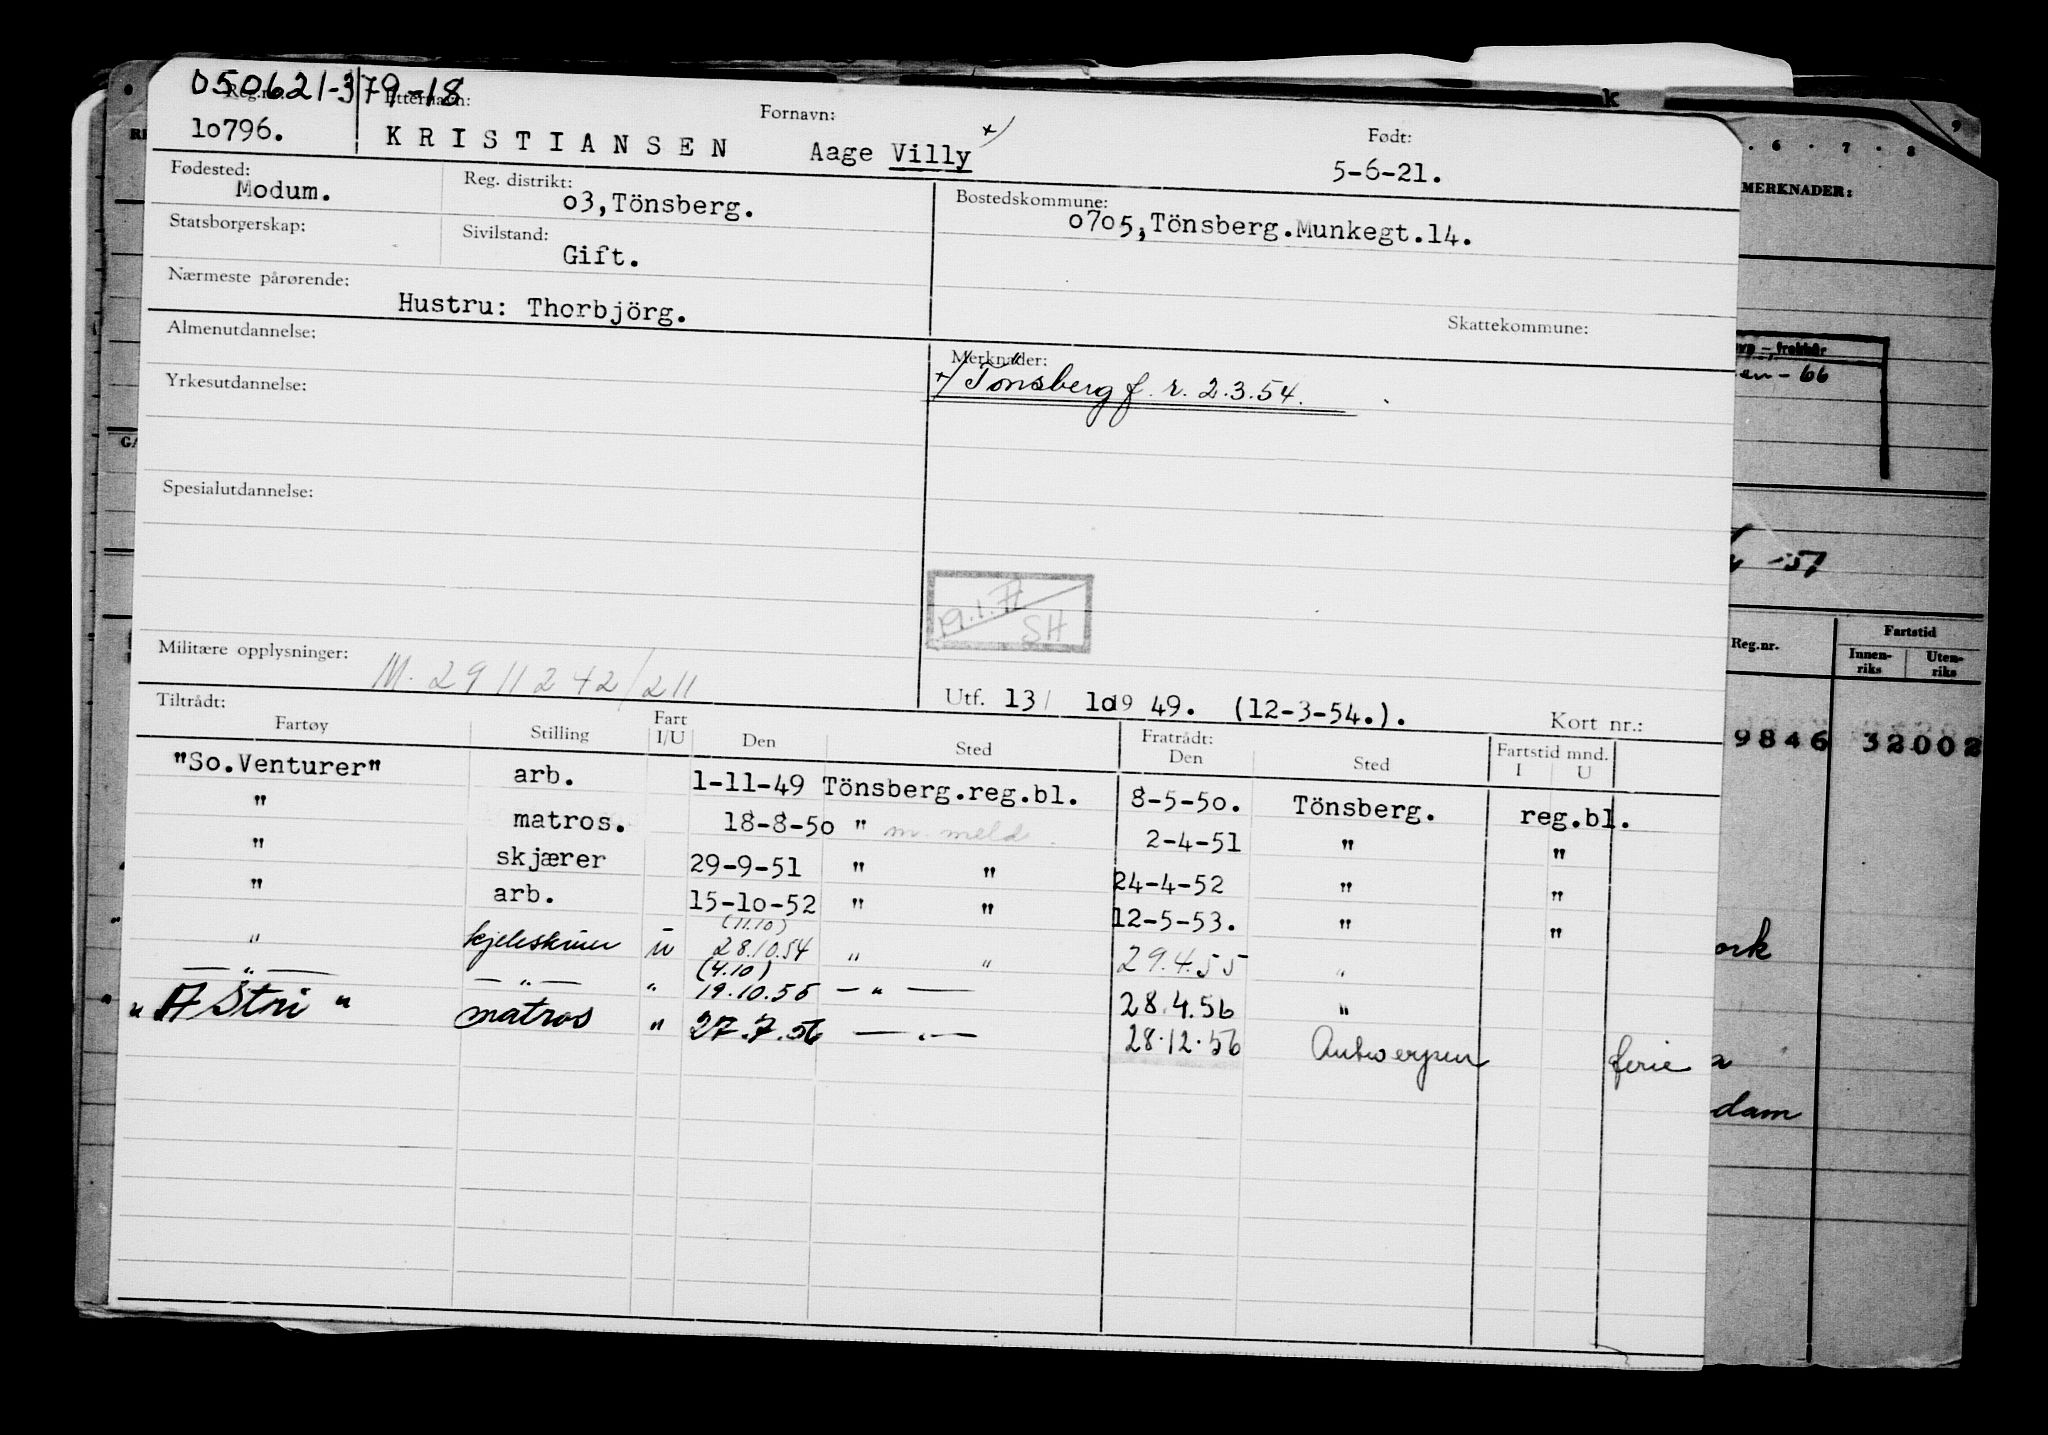 050621-379-18
Reg.nr. Etternavn: Fornavn: Født:
lo796. KRISTIANSEN Aage Villy +/ 5-6-21.
Fødested: Reg. distrikt: Bostedskommune:
Modum. o3,Tönsberg. o7o5,Tönsberg.Munkegt.14.
Statsborgerskap: Sivilstand:
Gift.
Nærmeste pårørende:
Hustru: Thorbjörg.
Skattekommune:
Almenutdannelse: Merknader:
+/ Tönsberg f. r. 2.3.54.
Yrkesutdannelse:
Spesialutdannelse:
19.1.71
SH
Militære opplysninger: M. 2911242/211
Utf. 13/ lo19 49. (12-3-54.). Kort nr.:
Tiltrådt: Fratrådt:
Fartøy Stilling Fart I/U Den Sted Den Sted Fartstid mnd. I U
"So.Venturer" arb. 1-11-49 Tönsberg.reg.bl. 8-5-5o. Tönsberg. reg.bl.
" matros. 18-8-5o " m. meld. 2-4-51 " "
" skjærer 29-9-51 " " 24-4-52 " "
" arb. 15-lo-52 " " 12-5-53. " "
(11.10)
" u 28.10.54 " " 29.4.55 "
(4.10)
—"— —"— " 19.10.55 —"— 28.4.56 "
matros " 27.7.56 —"— 28.12.56 Antwerpen ferie
6 7 8 9
MERKNADER:
-66
-57
Reg.nr. Fartstid
Innen-riks Uten-riks
9846 32002
ork
dam